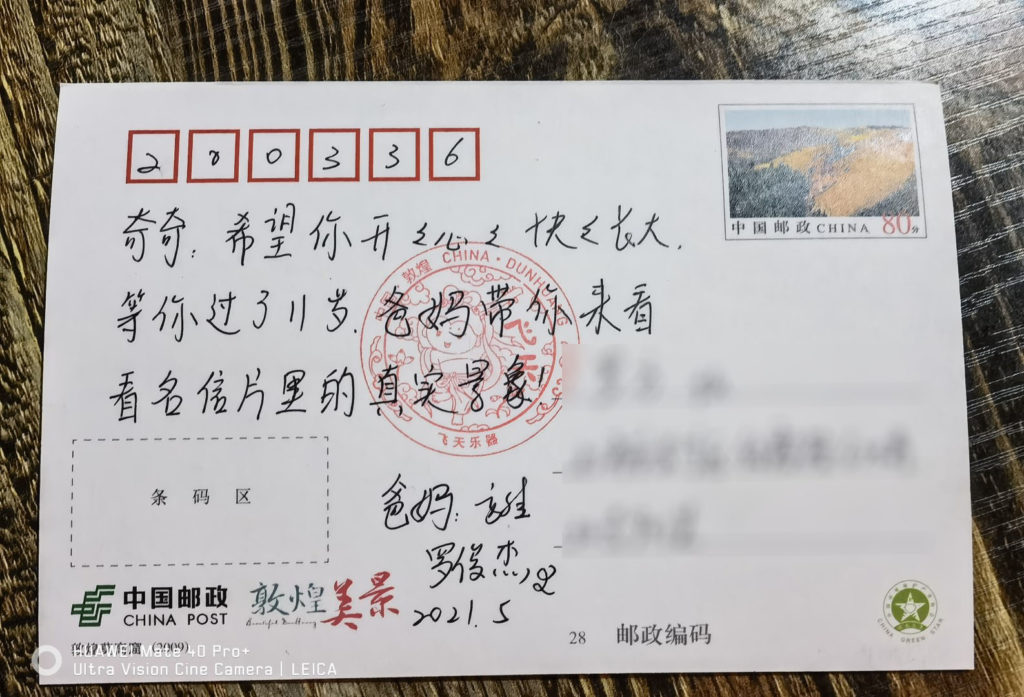 奇奇:希望你开々心々快々长大.
等你过了11岁.爸妈带你来看
看名信片里的真实景象!
爸妈:
罗俊杰
2021.5
中国邮政CHINA
80分
敦煌 CHINA·DUNHUANG
飞天
飞天乐器
条码区
中国邮政
CHINA POST
敦煌美景
Beautiful DunHuang
(2009)
28
邮政编码
CHINA GREEN STAR
HUAWEI Mate 40 Pro+
Ultra Vision Cine Camera | LEICA